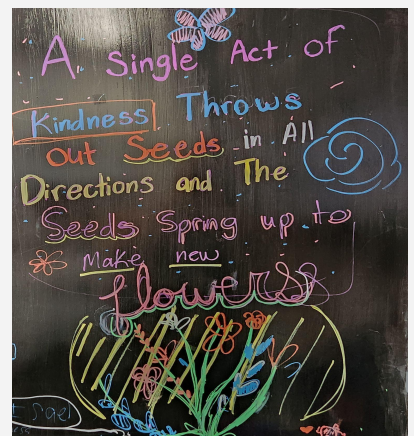 A Single Act of
Kindness Throws
out Seeds in All
Directions and The
Seeds Spring up to
Make new
flowers